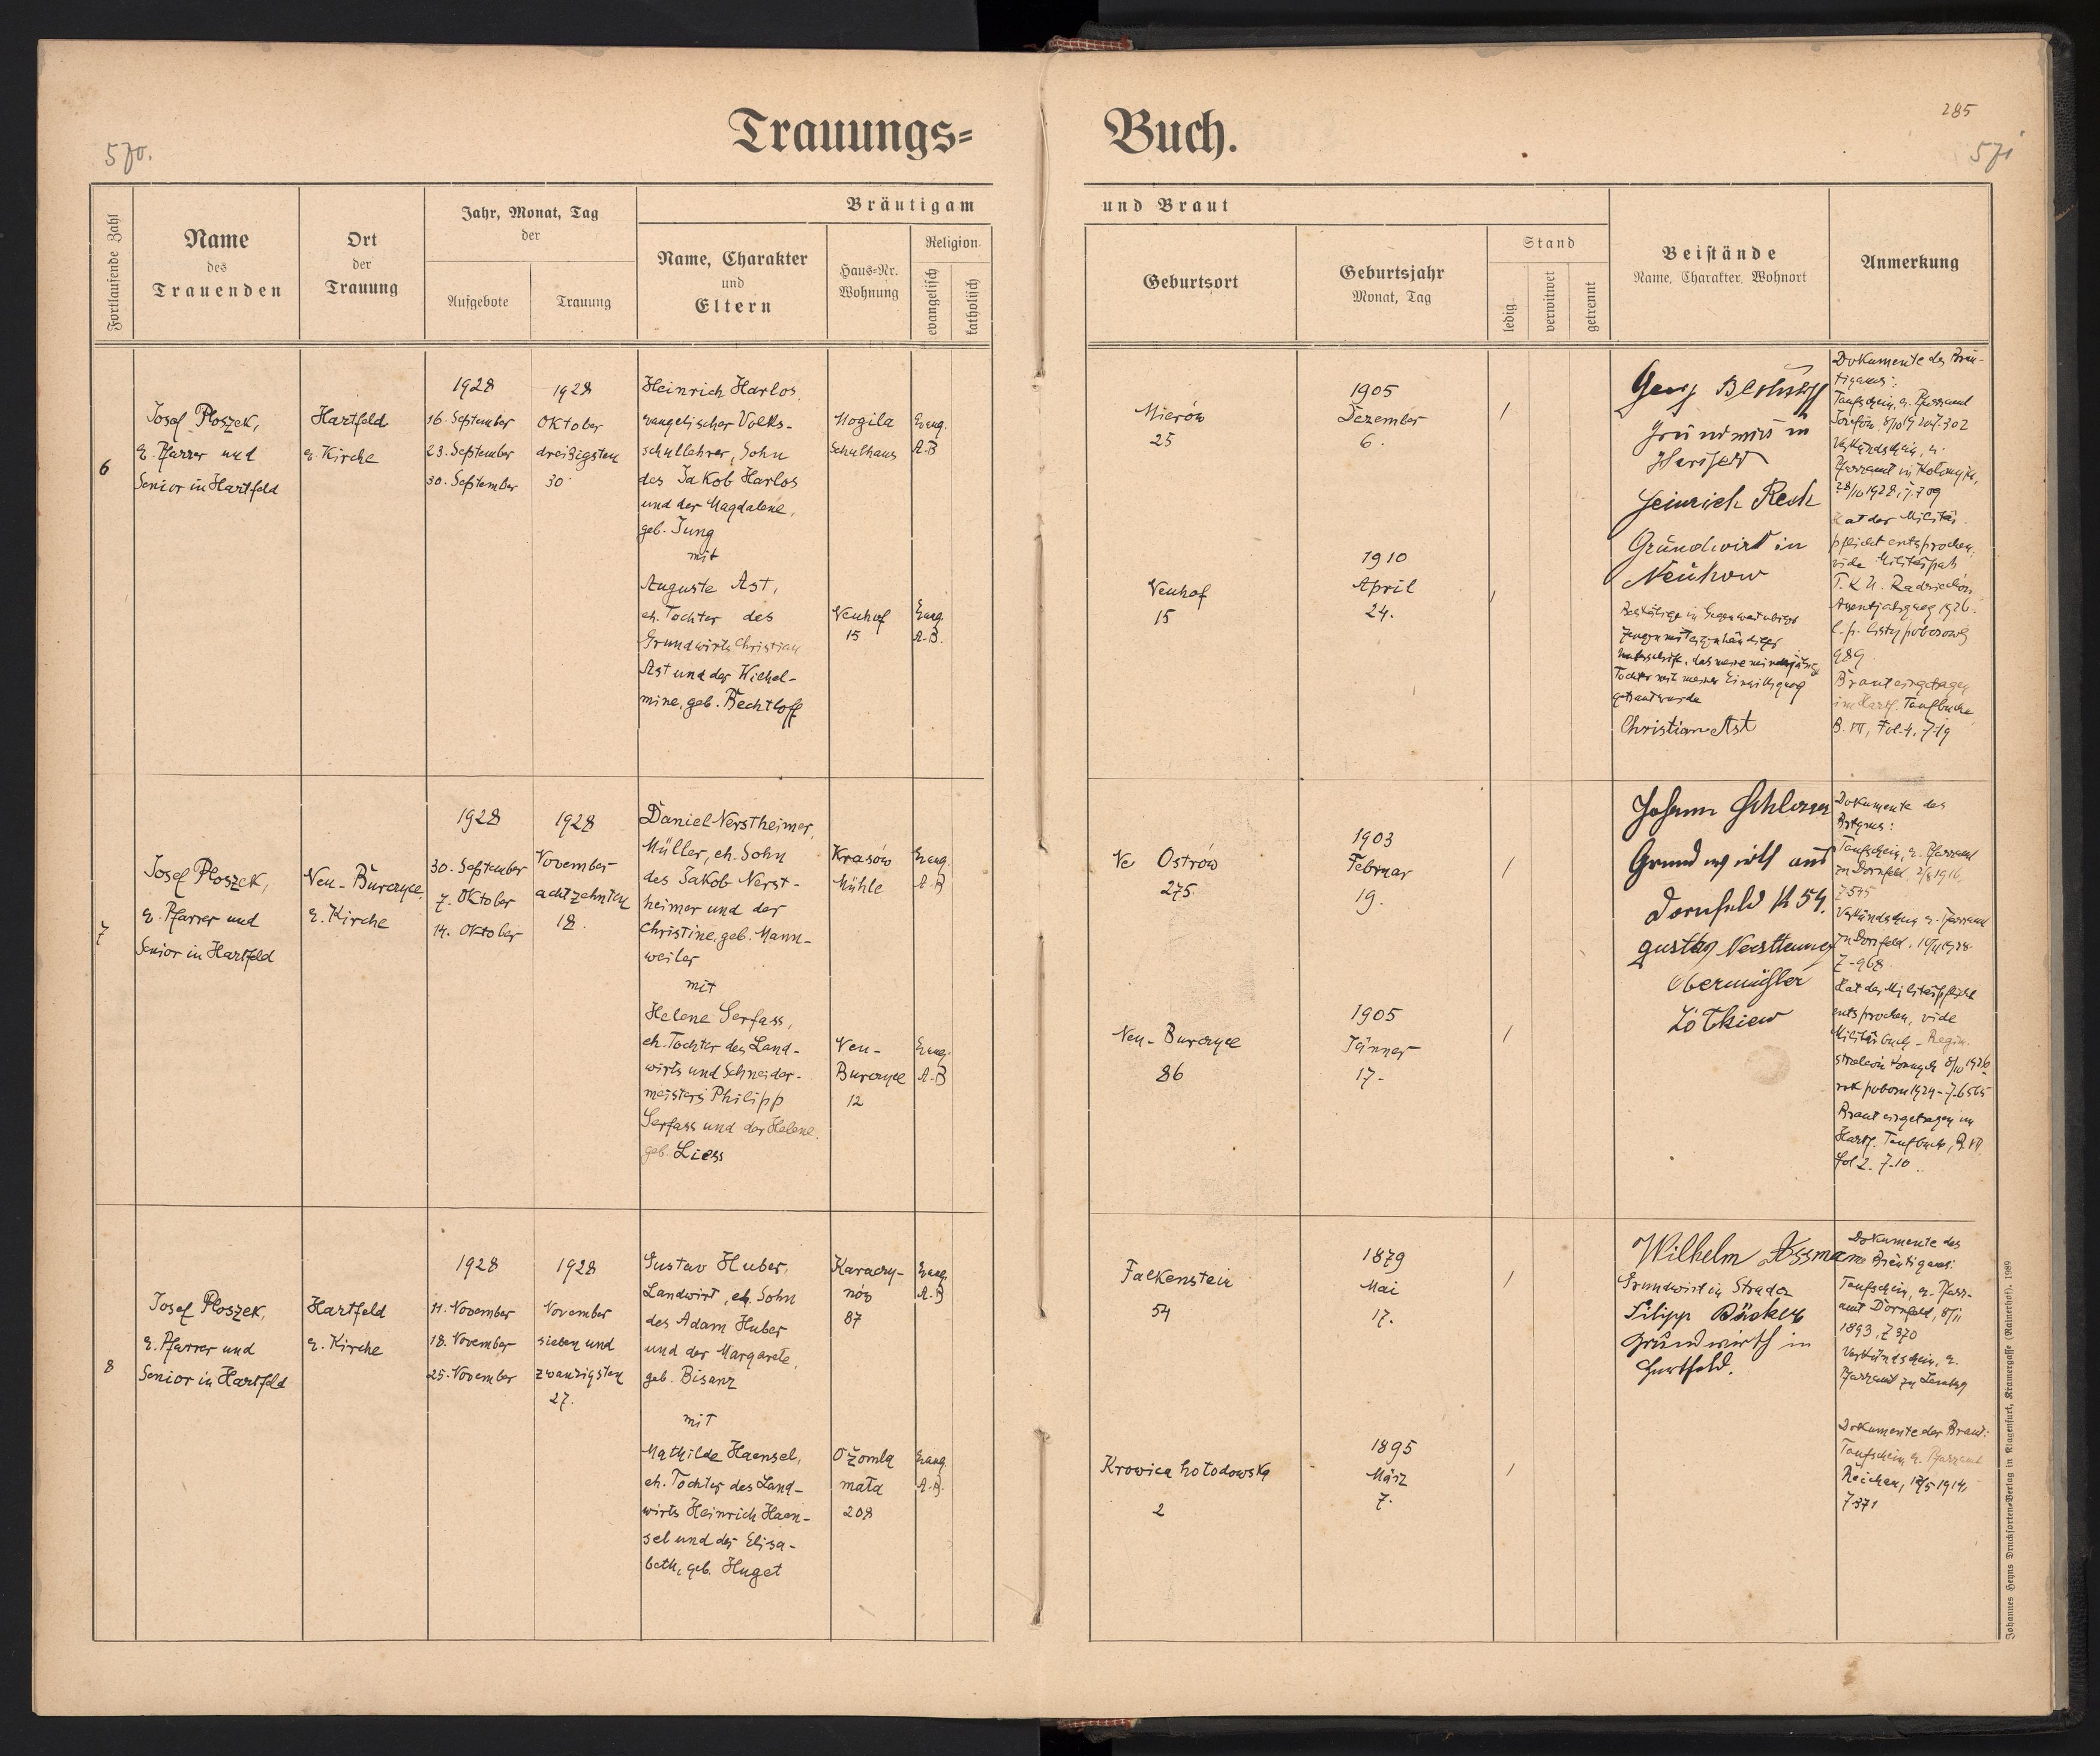 Trauungs=
Buch.
570.
285
571
Fortlaufende Zahl
Name
des
Trauenden
Ort
der
Trauung
Jahr, Monat, Tag
der
Aufgebote
Trauung
Bräutigam
Name, Charakter
und
Eltern
Haus-Nr.
Wohnung
Religion
evangelisch
katholisch
und Braut
Geburtsort
Geburtsjahr
Monat, Tag
Stand
ledig
verwitwet
getrennt
Beistände
Name, Charakter, Wohnort
Anmerkung
6
Josef Ploszek,
e. Pfarrer und
Senior in Hartfeld
Hartfeld
e. Kirche
1928
16. September
23. September
30. September
1928
Oktober
dreißigsten
30
Heinrich Harlos
evangelischer Volks-
schullehrer, Sohn
des Jakob Harlos
und der Magdalene,
geb. Jung
mit
Auguste Ast,
eh. Tochter des
Grundwirts Christian
Ast und der Wichel-
mine, geb. Bechtloff
Mogila
Schulhaus
Evang.
A.B
Neuhof
15
Evang.
A.B.
Mierów
25
1905
Dezember
6.
/
Neuhof
15
1910
April
24.
/
Georg
Grundwirt in
Heinrich Rech
Grundwirt in
Neuhow
Tochter mit meiner Einwilligung
getraut wurde
Christian Ast
Dokumente des Bräu-
tigams:
Taufschein, e. Pfarramt
Verkündschein, e.
Pfarramt in Kolomyja,
28/10 1928, Z. 709
Hat der Militär-
pflicht entsprochen,
vide Militärpaß
989
Braut eingetragen
im Hartf. Taufbuche
B. III, Fol. 4, Z 19
7
Josef Ploszek,
e. Pfarrer und
Senior in Hartfeld
Neu-Burczyce
e. Kirche
1928
30. September
7. Oktober
14. Oktober
1928
November
achtzehnten
18.
Daniel Nerstheimer,
Müller, eh. Sohn
des Jakob Nerst-
heimer und der
Christine, geb. Mann-
weiler
mit
Helene Serfass,
eh. Tochter des Land-
wirts und Schneider-
meisters Philipp
Serfass und der Helene
geb. Liess
Krasów
Mühle
Evang.
A.B
Neu-
Burczyce
12
Evang.
A.B
Ostrów
275.
1903
Februar
19.
/
Neu-Burczyce
86
1905
Jänner
17.
/
Johann
Grundwirth aus
Dornfeld
Gustav
Obermüller
Zólkiew
Dokumente des
Btgms:
Taufschein, e. Pfarramt
zu Dornfeld, 2/8 1916
Z 535
Verkündschein e. Pfarramt
zu Dornfeld,
Z-968
Hat der Militärpflicht
entsprochen, vide
Braut eingetragen im
Hartf. Taufbuch, B. III
fol 2. Z-10
8
Josef Ploszek,
e. Pfarrer und
Senior in Hartfeld
Hartfeld
e. Kirche
1928
11. November
18. November
25. November
1928
November
sieben und
zwanzigsten
27.
Gustav Huber,
Landwirt, eh. Sohn
des Adam Huber
und der Margarete,
geb. Bisanz
mit
Mathilde Haensel,
eh. Tochter des Land-
wirts Heinrich Haen-
sel und der Elisa-
beth, geb. Huget
Karaczy-
nów
87
Evang.
A.B
Ożomla
mała
208
Evang.
A.B.
Falkenstein
54
1879
Mai
17.
/
Krowica hołodowska
2
1895
März
7.
/
Wilhelm Assmann
Grundwirt in
Filipp Bäcker
Grundwirth in
Hartfeld.
Dokumente des
Bräutigams:
Taufschein, e. Pfarr-
amt Dornfeld, 8/11
1893, Z 370
Verkündschein, e.
Pfarramt zu Lemberg
Dokumente der Braut:
Taufschein e. Pfarramt
Reichau,
Z 371
Johannes Heyns Drucksorten-Verlag in Klagenfurt, Kramergasse (Rainerhof). ar. 1989